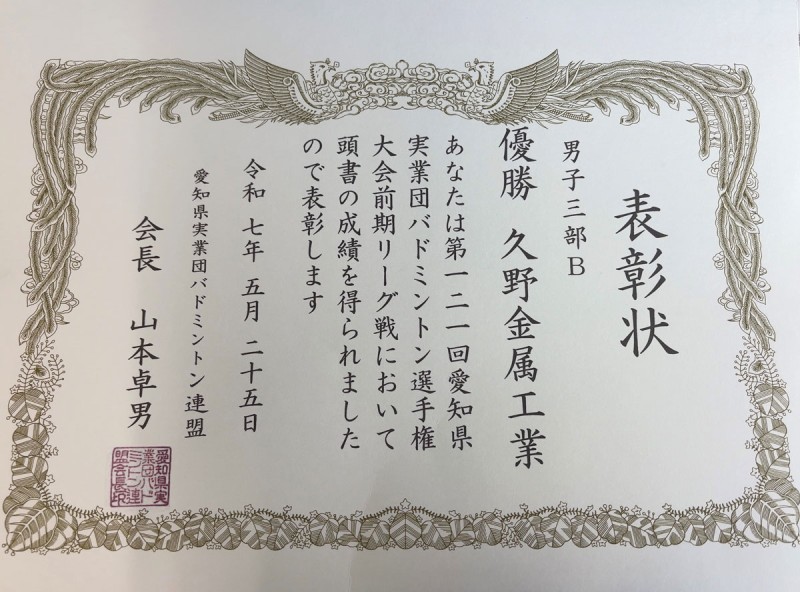 表彰状
男子三部B
優勝 久野金属工業
あなたは第一二一回愛知県
実業団バドミントン選手権
大会前期リーグ戦において
頭書の成績を得られました
ので表彰します
令和 七年 五月 二十五日
愛知県実業団バドミントン連盟
会長 山本卓男
愛知県実
業団バド
ミントン連
盟会長印